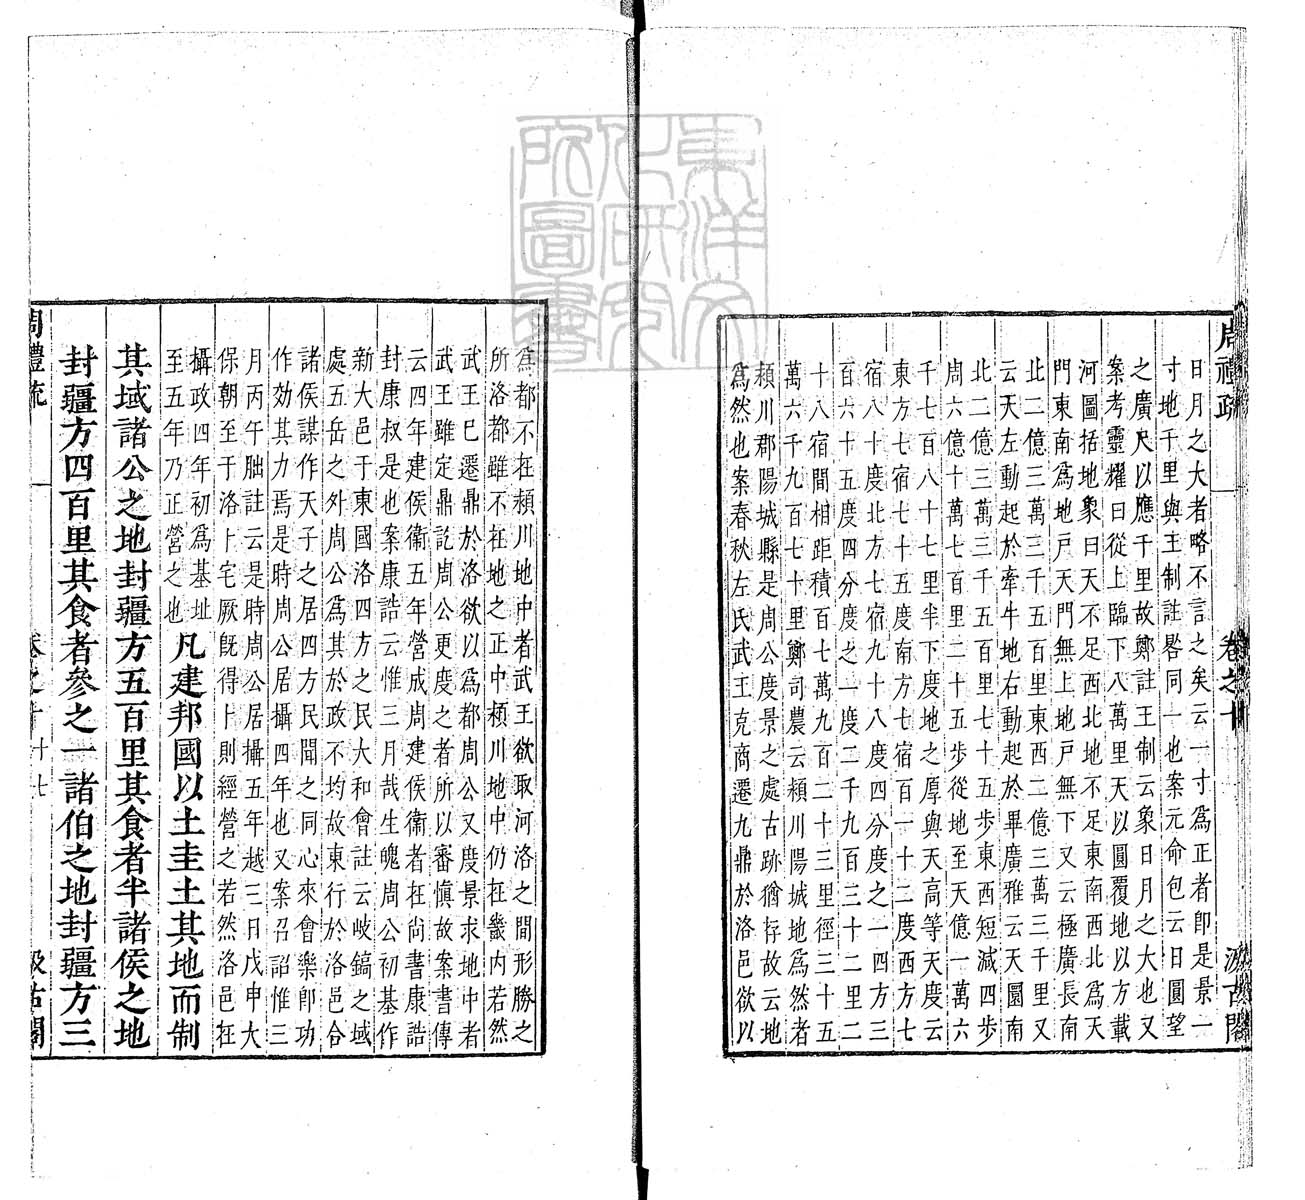 周禮疏 卷之十 汲古閣
日月之大者略不言之矣云一寸爲正者卽是景一
寸地千里與王制註畧同一也案元命包云日圓望
之廣尺以應千里故鄭註王制云象日月之大也又
案考靈耀曰從上臨下八萬里天以圓覆地以方載
河圖括地象曰天不足西北地不足東南西北爲天
門東南爲地戸天門無上地戸無下又云極廣長南
北二億三萬三千五百里東西二億三萬三千里又
云天左動起於牽牛地右動起於畢廣雅云天圜南
北二億三萬三千五百里七十五步東西短減四步
周六億十萬七百里二十五步從地至天億一萬六
千七百八十七里半下度地之厚與天高等天度云
東方七宿七十五度南方七宿百一十二度西方七
宿八十度北方七宿九十八度四分度之一四方三
百六十五度四分度之一度二千九百三十二里二
十八宿間相距積百七萬九百二十三里徑三十五
萬六千九百七十里鄭司農云頴川陽城地爲然者
頴川郡陽城縣是周公度景之處古跡猶存故云地
爲然也案春秋左氏武王克商遷九鼎於洛邑欲以
爲都不在頴川地中者武王欲取河洛之間形勝之
所洛都雖不在地之正中頴川地中仍在畿内若然
武王巳遷鼎於洛欲以爲都周公又度景求地中者
武王雖定鼎訖周公更度之者所以審愼故案書傳
云四年建侯衞五年營成周建侯衞者在尚書康誥
封康叔是也案康誥云惟三月哉生魄周公初基作
新大邑于東國洛四方之民大和會註云岐鎬之域
處五岳之外周公爲其於政不均故東行於洛邑合
諸侯謀作天子之居四方民聞之同心來會樂卽功
作效其力焉是時周公居攝四年也又案召詔惟三
月丙午朏註云是時周公居攝五年越三日戊申大
保朝至于洛卜宅厥旣得卜則經營之若然洛邑在
攝政四年初爲基址
至五年乃正營之也 凡建邦國以土圭土其地而制
其域諸公之地封疆方五百里其食者半諸侯之地
封疆方四百里其食者參之一諸伯之地封疆方三
周禮疏 卷之十 十七 汲古閣
東洋文化研究所圖書